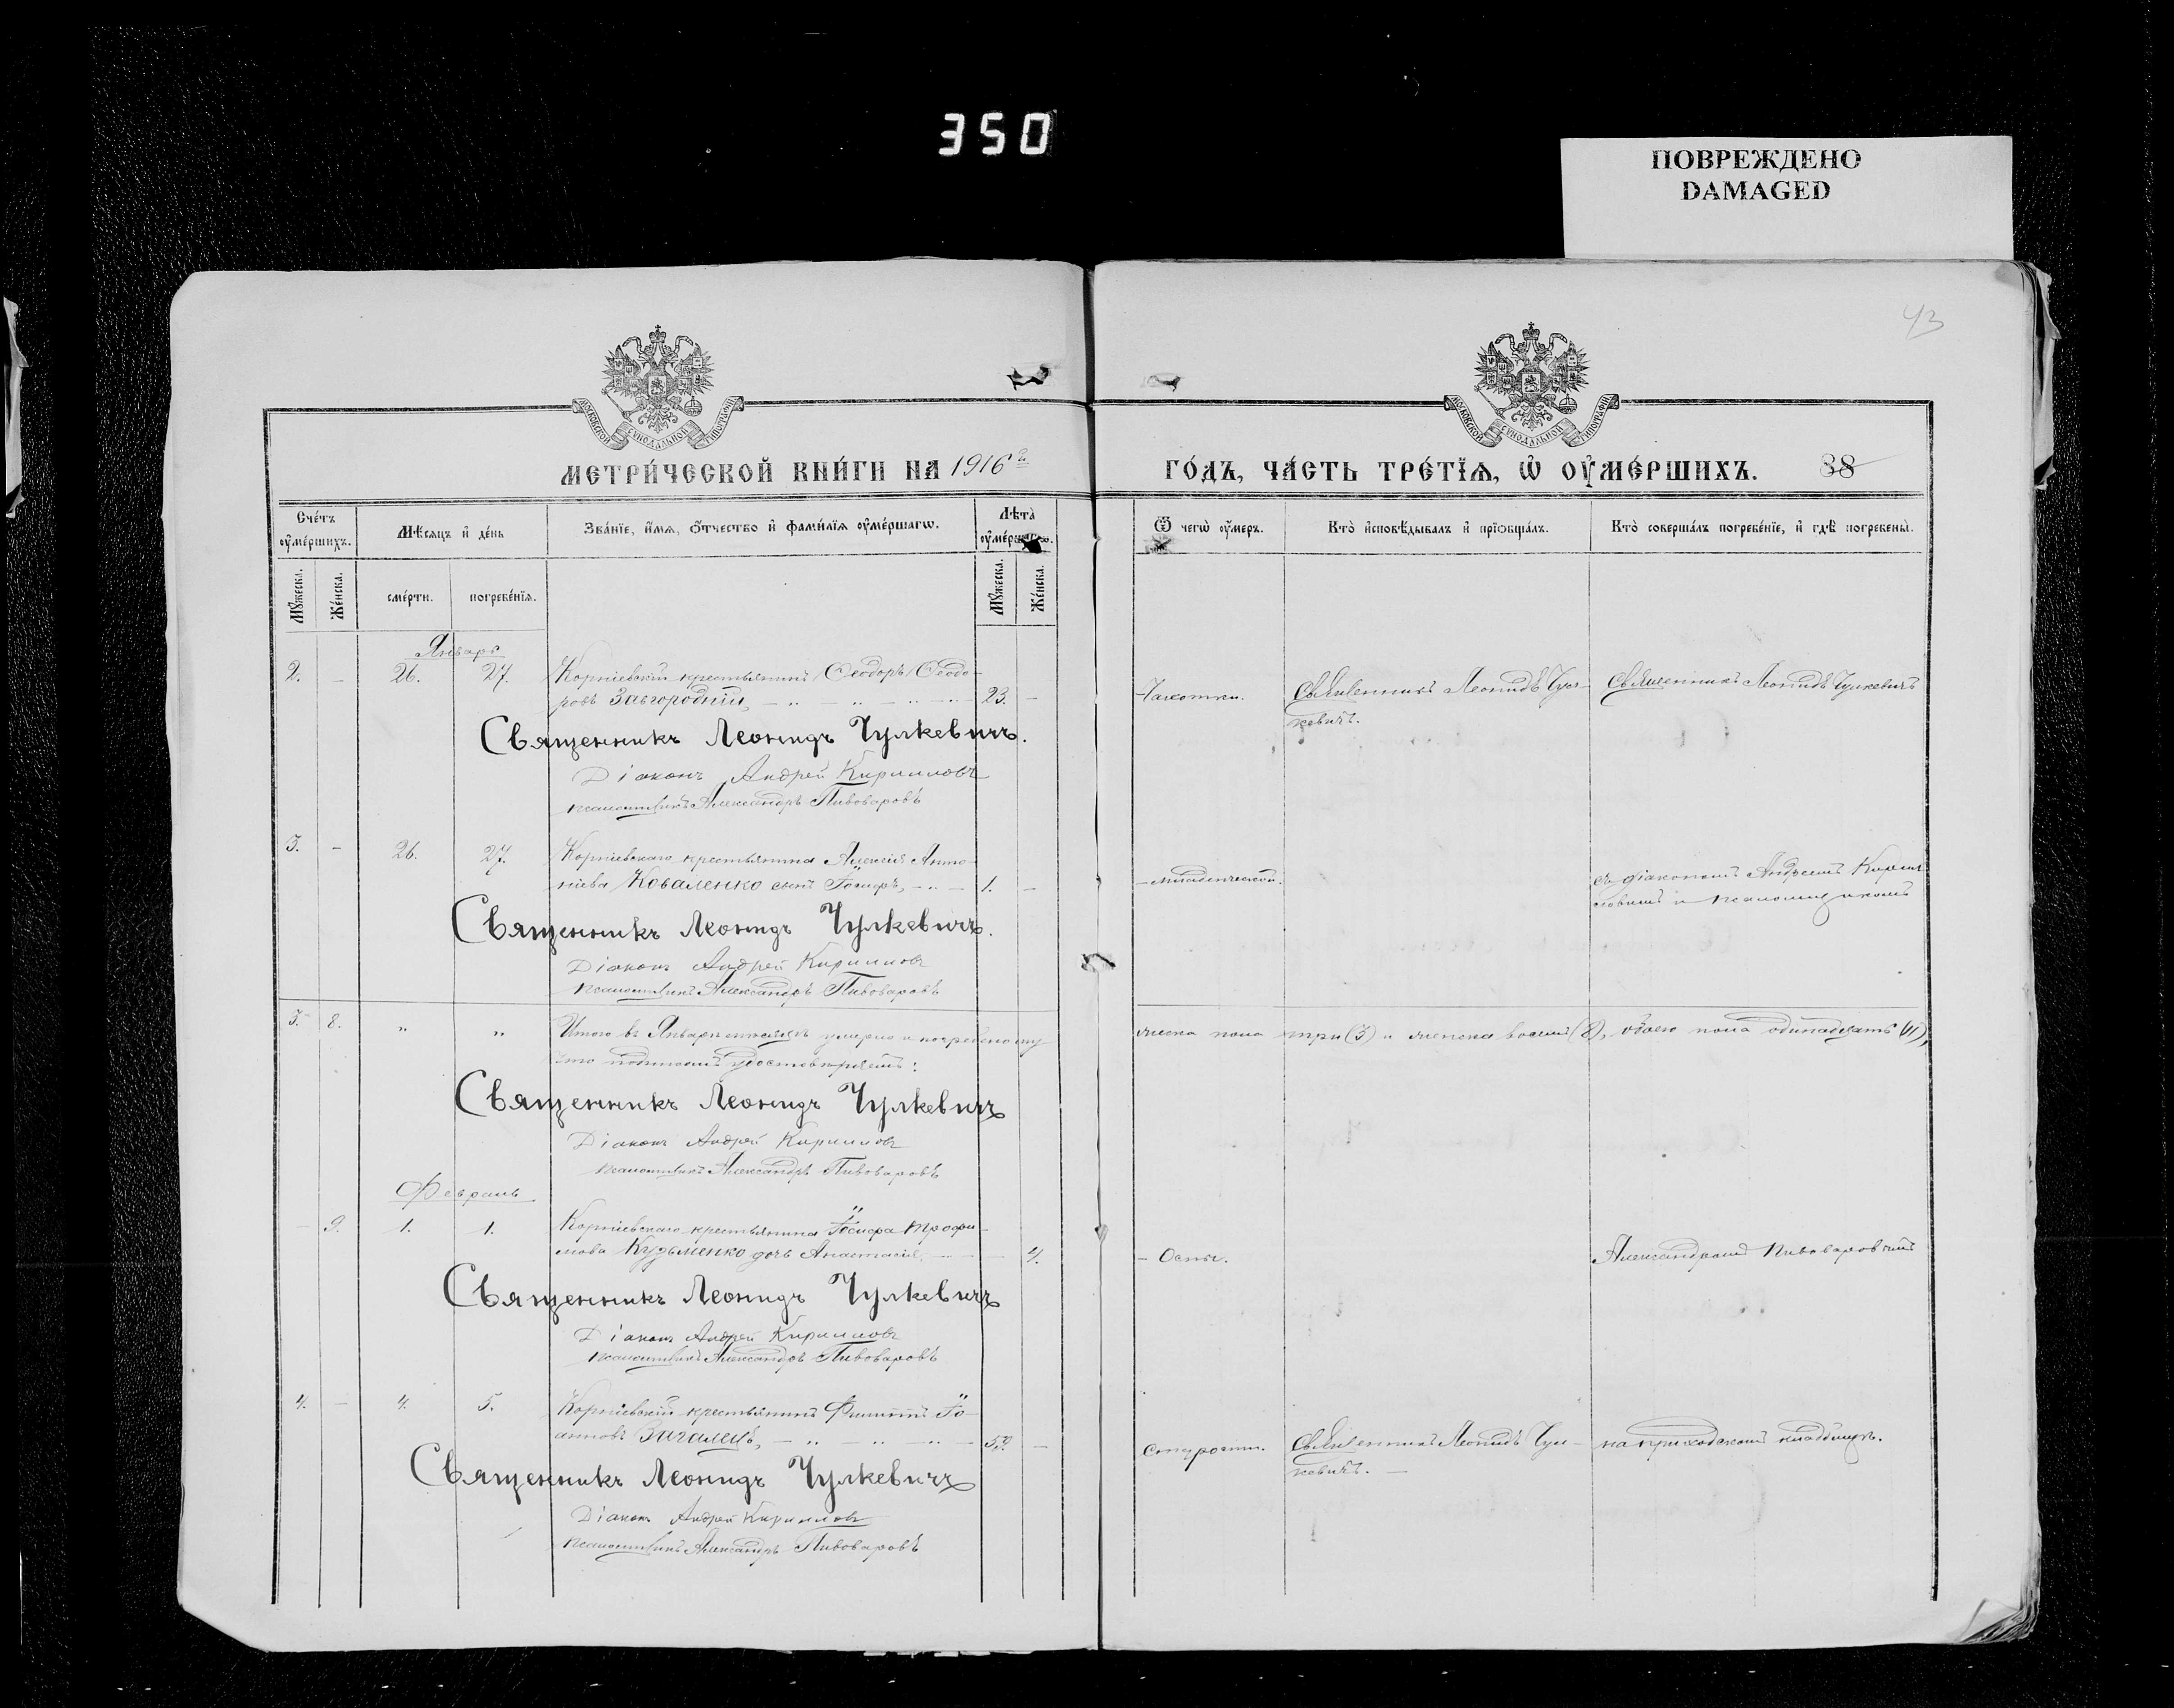 350
ПОВРЕЖДЕНО
DAMAGED
43
МОСКОВСКОЙ СѴНОДАЛЬНОЙ ТИПОГРАФІИ
МОСКОВСКОЙ СѴНОДАЛЬНОЙ ТИПОГРАФІИ
МЕТРИ́ЧЕСКОЙ КНИ́ГИ НА 1916 г.
ГО́ДЪ, ЧА́СТЬ ТРЕ́ТЇѦ, Ѡ҆ ОУ҆МЕ́РШИХЪ. 38
Сче́тъ оу҆ме́ршихъ.
Мѣ́сѧцъ и҆ де́нь
Зва́нїе, и҆́мѧ, ѻ҆́тчество и҆ фами́лїѧ оу҆ме́ршагѡ.
Лѣта̀ оу҆ме́ршагѡ.
Ѿ чегѡ̀ оу҆́меръ.
Кто̀ и҆сповѣ́дывалъ и҆ прїѡбща́лъ.
Кто̀ соверша́лъ погребе́нїе, и҆ гдѣ̀ погребены̀.
Мꙋ́жеска.
Же́нска.
сме́рти.
погребе́нїѧ.
Мꙋ́жеска.
Же́нска.
Январь
2. – 26. 27. Корніевскій крестьянинъ Ѳеодоръ Ѳеодо-
ровъ Завгородній, 23. –
Чахотки.
Священникъ Леонидъ Чул-
кевичъ.
Священникъ Леонидъ Чулкевичъ
Священникъ Леонидъ Чулкевичъ.
Діаконъ Андрей Кирилловъ
псаломщикъ Александръ Пивоваровъ
3. – 26. 27. Корніевскаго крестьянина Алексія Анто-
ніева Коваленко сынъ Іосифъ, 1. –
младенческой.
съ діакономъ Андреемъ Кирил-
ловымъ и псаломщикомъ
Священникъ Леонидъ Чулкевичъ.
Діаконъ Андрей Кирилловъ
псаломщикъ Александръ Пивоваровъ
3. 8. " " Итого въ Январѣ мѣсяцѣ умерло и погребено му
жеска пола три (3) и женска восемь (8), обоего пола одинадцать (11),
что подписомъ удостовѣряемъ:
Священникъ Леонидъ Чулкевичъ
Діаконъ Андрей Кирилловъ
псаломщикъ Александръ Пивоваровъ
Февраль
– 9. 1. 1. Корніевскаго крестьянина Іосифа Трофи-
мова Кузьменко дочь Анастасія, – 4.
Оспы.
Александромъ Пивоваровымъ
Священникъ Леонидъ Чулкевичъ
Діаконъ Андрей Кирилловъ
псаломщикъ Александръ Пивоваровъ
4. – 4. 5. Корніевскій крестьянинъ Филиппъ Іо-
анновъ –
Старости.
Священникъ Леонидъ Чул-
кевичъ.
на приходскомъ кладбищѣ.
Священникъ Леонидъ Чулкевичъ
Діаконъ Андрей Кирилловъ
псаломщикъ Александръ Пивоваровъ